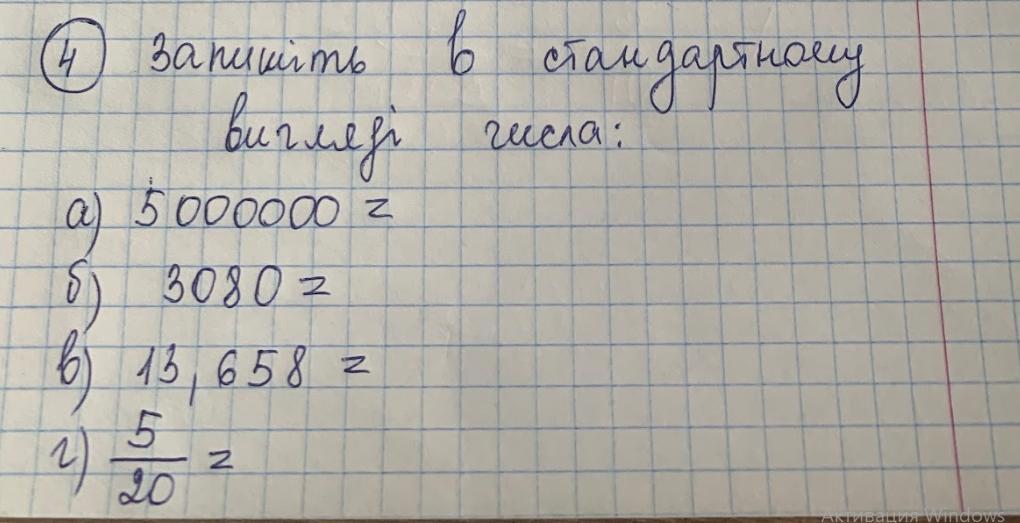 4 Запишіть в стандартному
вигляді числа:
а) 5000000 =
б) 3080 =
в) 13,658 =
г) 5/20 =
Активация Windows